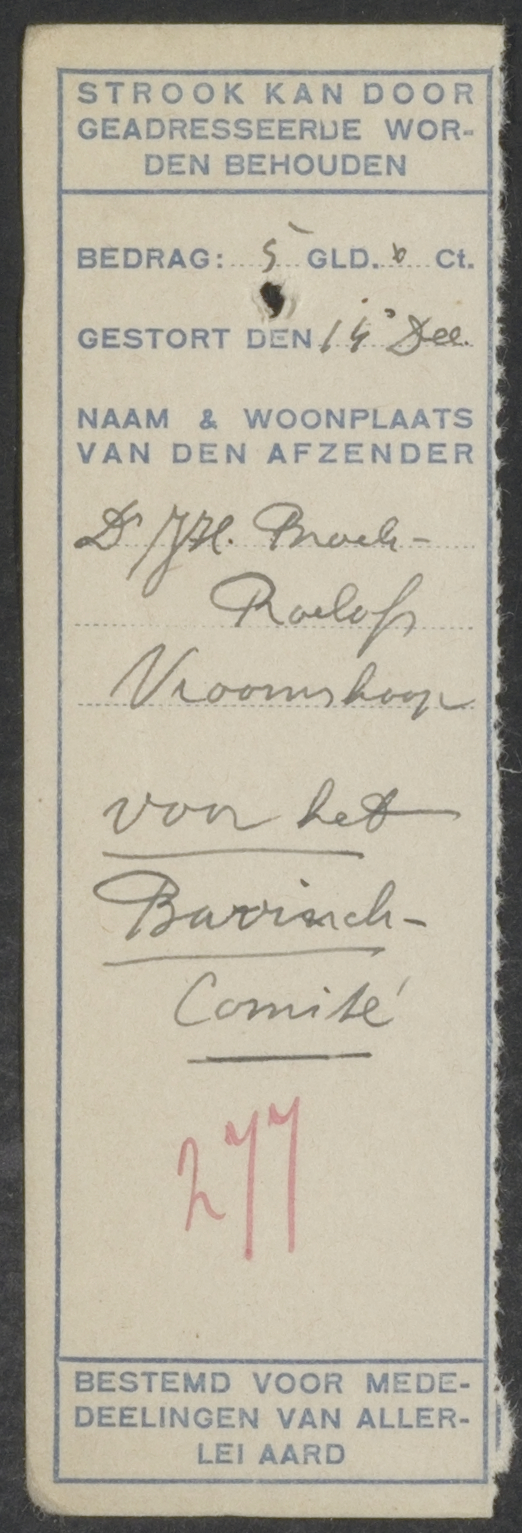 STROOK KAN DOOR
GEADRESSEERDE WOR-
DEN BEHOUDEN
BEDRAG: 5 GLD. Ct.
GESTORT DEN 14 Dec.
NAAM & WOONPLAATS
VAN DEN AFZENDER
Dr J.H. Broek-
Roelofs
Vroomshoop
voor het
Bavinck-
Comité
277
BESTEMD VOOR MEDE-
DEELINGEN VAN ALLER-
LEI AARD